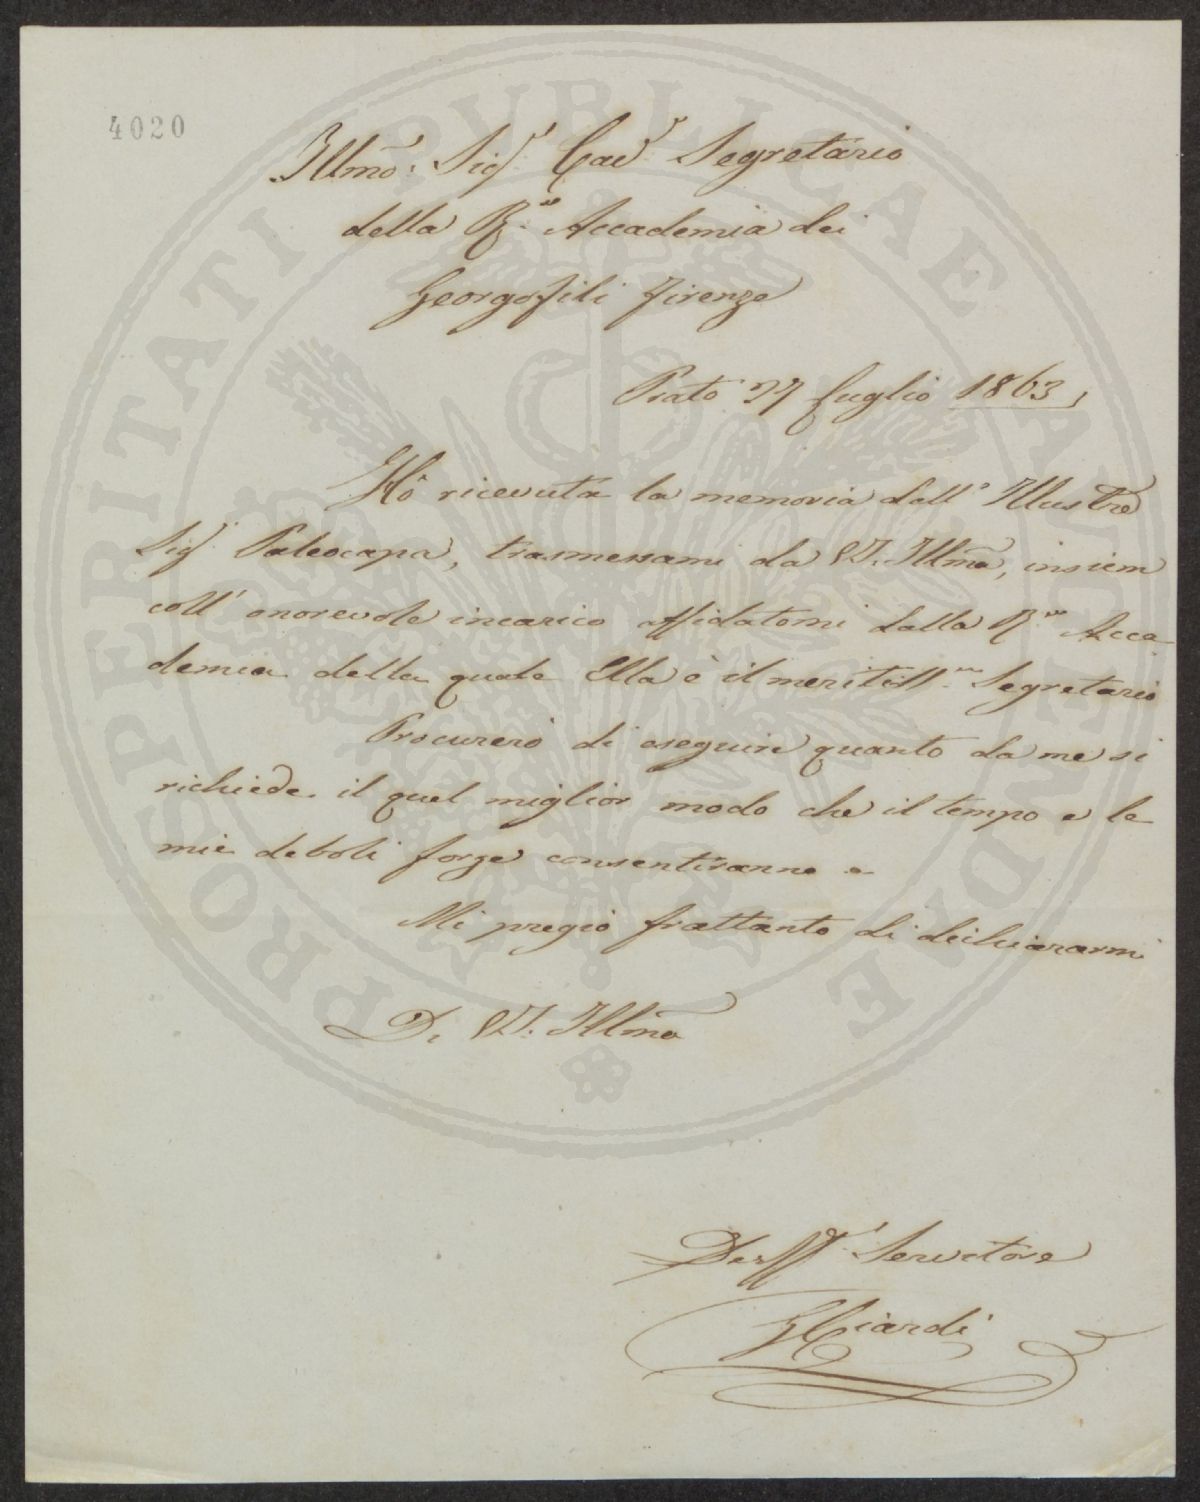 4020
Illmo: Sigr. Cavr. Segretario
della R.le Accademia dei
Georgofili Firenze
Prato 27 Luglio 1863
Hò ricevuta la memoria dell' Illustre
Sigr. Paleocapa, trasmessami da V.S. Illma, insiem
coll' onorevole incarico affidatomi dalla R.le Acca
demia della quale Ella è il meritiss.mo Segretario
Procurerò di eseguire quanto da me si
richiede il quel miglior modo che il tempo e le
mie deboli forze consentiranno e
Mi pregio frattanto di dichiararmi
Di V.S. Illma
Servitore
GCiardi
PROSPERITATI PUBLICAE AUGENDAE